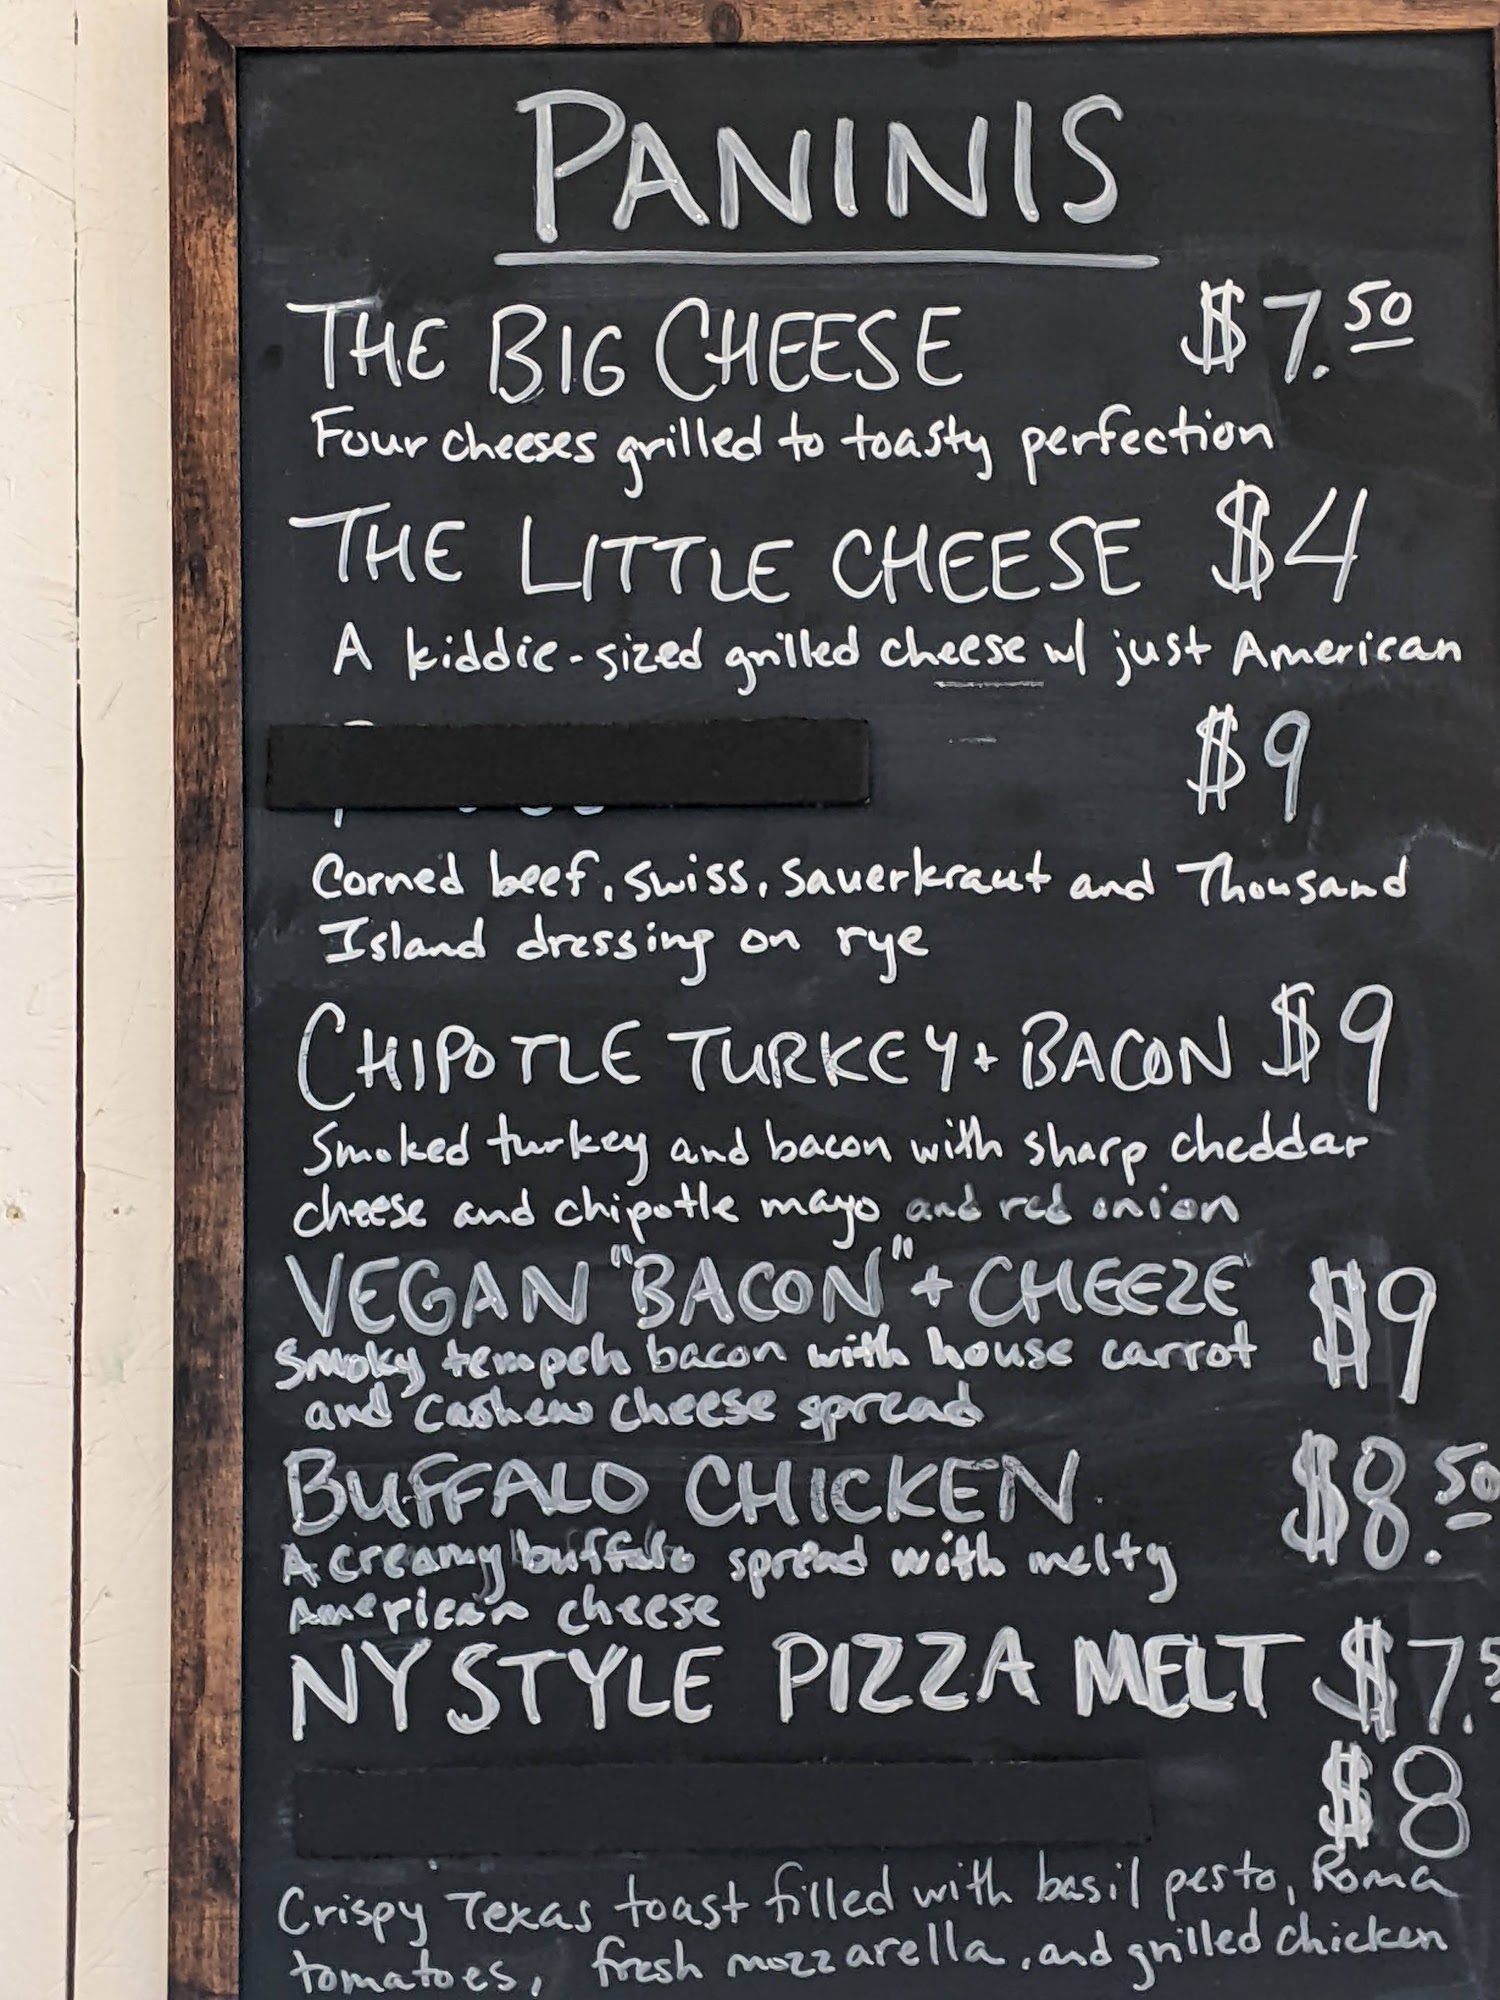 PANINIS
THE BIG CHEESE $7.50
Four cheeses grilled to toasty perfection
THE LITTLE CHEESE $4
A kiddie-sized grilled cheese w/ just American
$9
Corned beef, swiss, sauerkraut and Thousand
Island dressing on rye
CHIPOTLE TURKEY + BACON $9
Smoked turkey and bacon with sharp cheddar
cheese and chipotle mayo and red onion
VEGAN "BACON" + CHEEZE $9
Smoky tempeh bacon with house carrot
and cashew cheese spread
BUFFALO CHICKEN $8.50
A creamy buffalo spread with melty
American cheese
NY STYLE PIZZA MELT $7.5
$8
Crispy Texas toast filled with basil pesto, Roma
tomatoes, fresh mozzarella, and grilled chicken